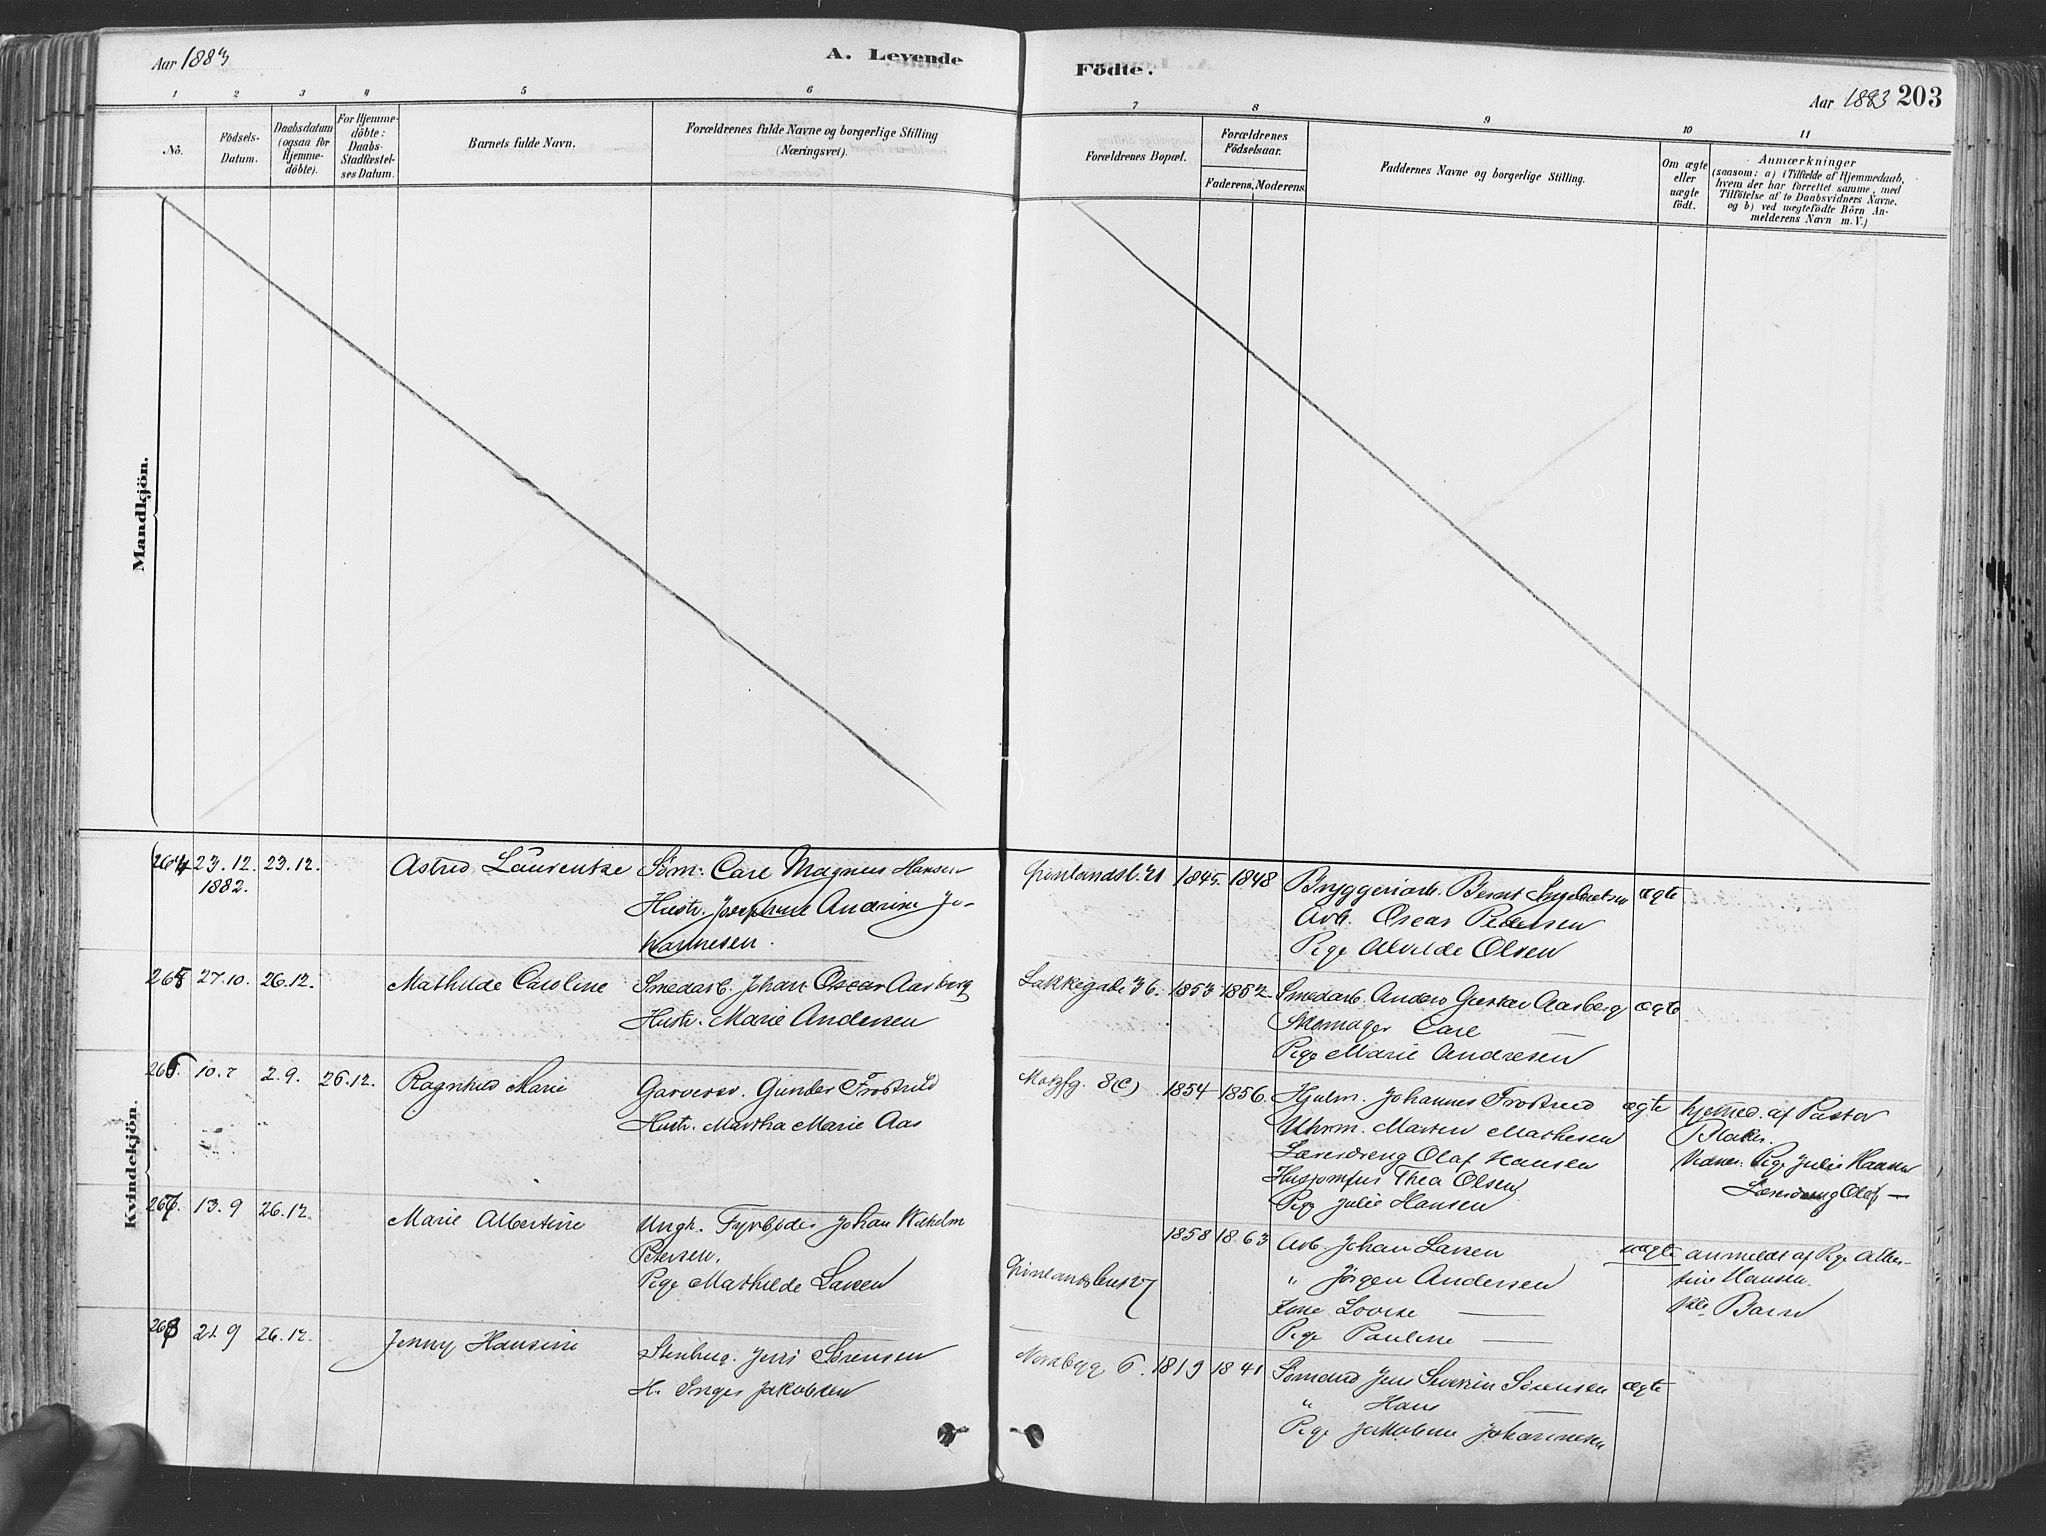 Aar 1883
A. Levende
Födte.
Aar 1883 203
1 2 3 4 5 6 7 8 9 10 11
No.
Födsels-
Datum.
Daabsdatum
(ogsaa for
Hjemme-
döbte).
For Hjemme-
döbte:
Daabs-
Stadfæstel-
ses Datum.
Barnets fulde Navn.
Forældrenes fulde Navne og borgerlige Stilling
(Næringsvei).
Forældrenes Bopæl.
Forældrenes
Födselsaar.
Faderens. Moderens.
Faddernes Navne og borgerlige Stilling.
Om ægte
eller
uægte
födt.
Anmærkninger
(saasom: a) i Tilfælde af Hjemmedaab,
hvem der har forrettet samme, med
Tilföielse af to Daabsvidners Navne.
og b) ved uægtefödte Börn An-
melderens Navn m. V.)
Mandkjön.
Kvindekjön.
264 23.12. 23.12.
1882.
Astrid Laurentze
Søm: Carl Magnus Hansen
Hustr. Josephine Andrine Jo-
hannesen.
Grønlandsl. 21 1845. 1848
Bryggeriarb. Bernt
Arb. Oscar Pedersen
Pige Alvilde Olsen
ægte
265 27.10. 26.12.
Mathilde Caroline
Smedarb. Johan Oscar Aasberg
Hustr. Marie Andersen
Lakkegade 36. 1853 1852
Smedarb. Anders Gustav Aasberg
Skomager Carl —
Pige Marie Andresen
ægte
266. 10.7 2.9. 26.12.
Ragnhild Marie
Garversv. Gunder Frøstrud
Hustr. Martha Marie Aas
Motzfg. 8(c) 1854 1856.
Hjulm. Johannes Frøstrud
Uhrm. Marten Mathesen
Læredreng Olaf Hansen
Husjomfru Thea Olsen
Pige Julie Hansen
ægte
hjemmed. af Pastor
Blakr.
Vidner: Pige Julie Hansen
Læredreng Olaf —
267. 13.9 26.12.
Marie Albertine
Ungk. Fyrbøder Johan Wilhelm
Petersen.
Pige Mathilde Larsen
Grønlandsleret 27 1858 1863
Arb. Johan Larsen
" Jørgen Andersen
Kone Lovise —
Pige Pauline —
uægte
anmeldt af Pige Alber-
tine Hansen.
Barn
268 21 9 26.12.
Jenny Hansine
Stenhug. Jens Sørensen
H. Inger Jakobsen
Nordbyg. 6. 1819 1841
Sømand Jens Severin Sørensen
" Hans —
Pige Jakobine Johannesen
ægte